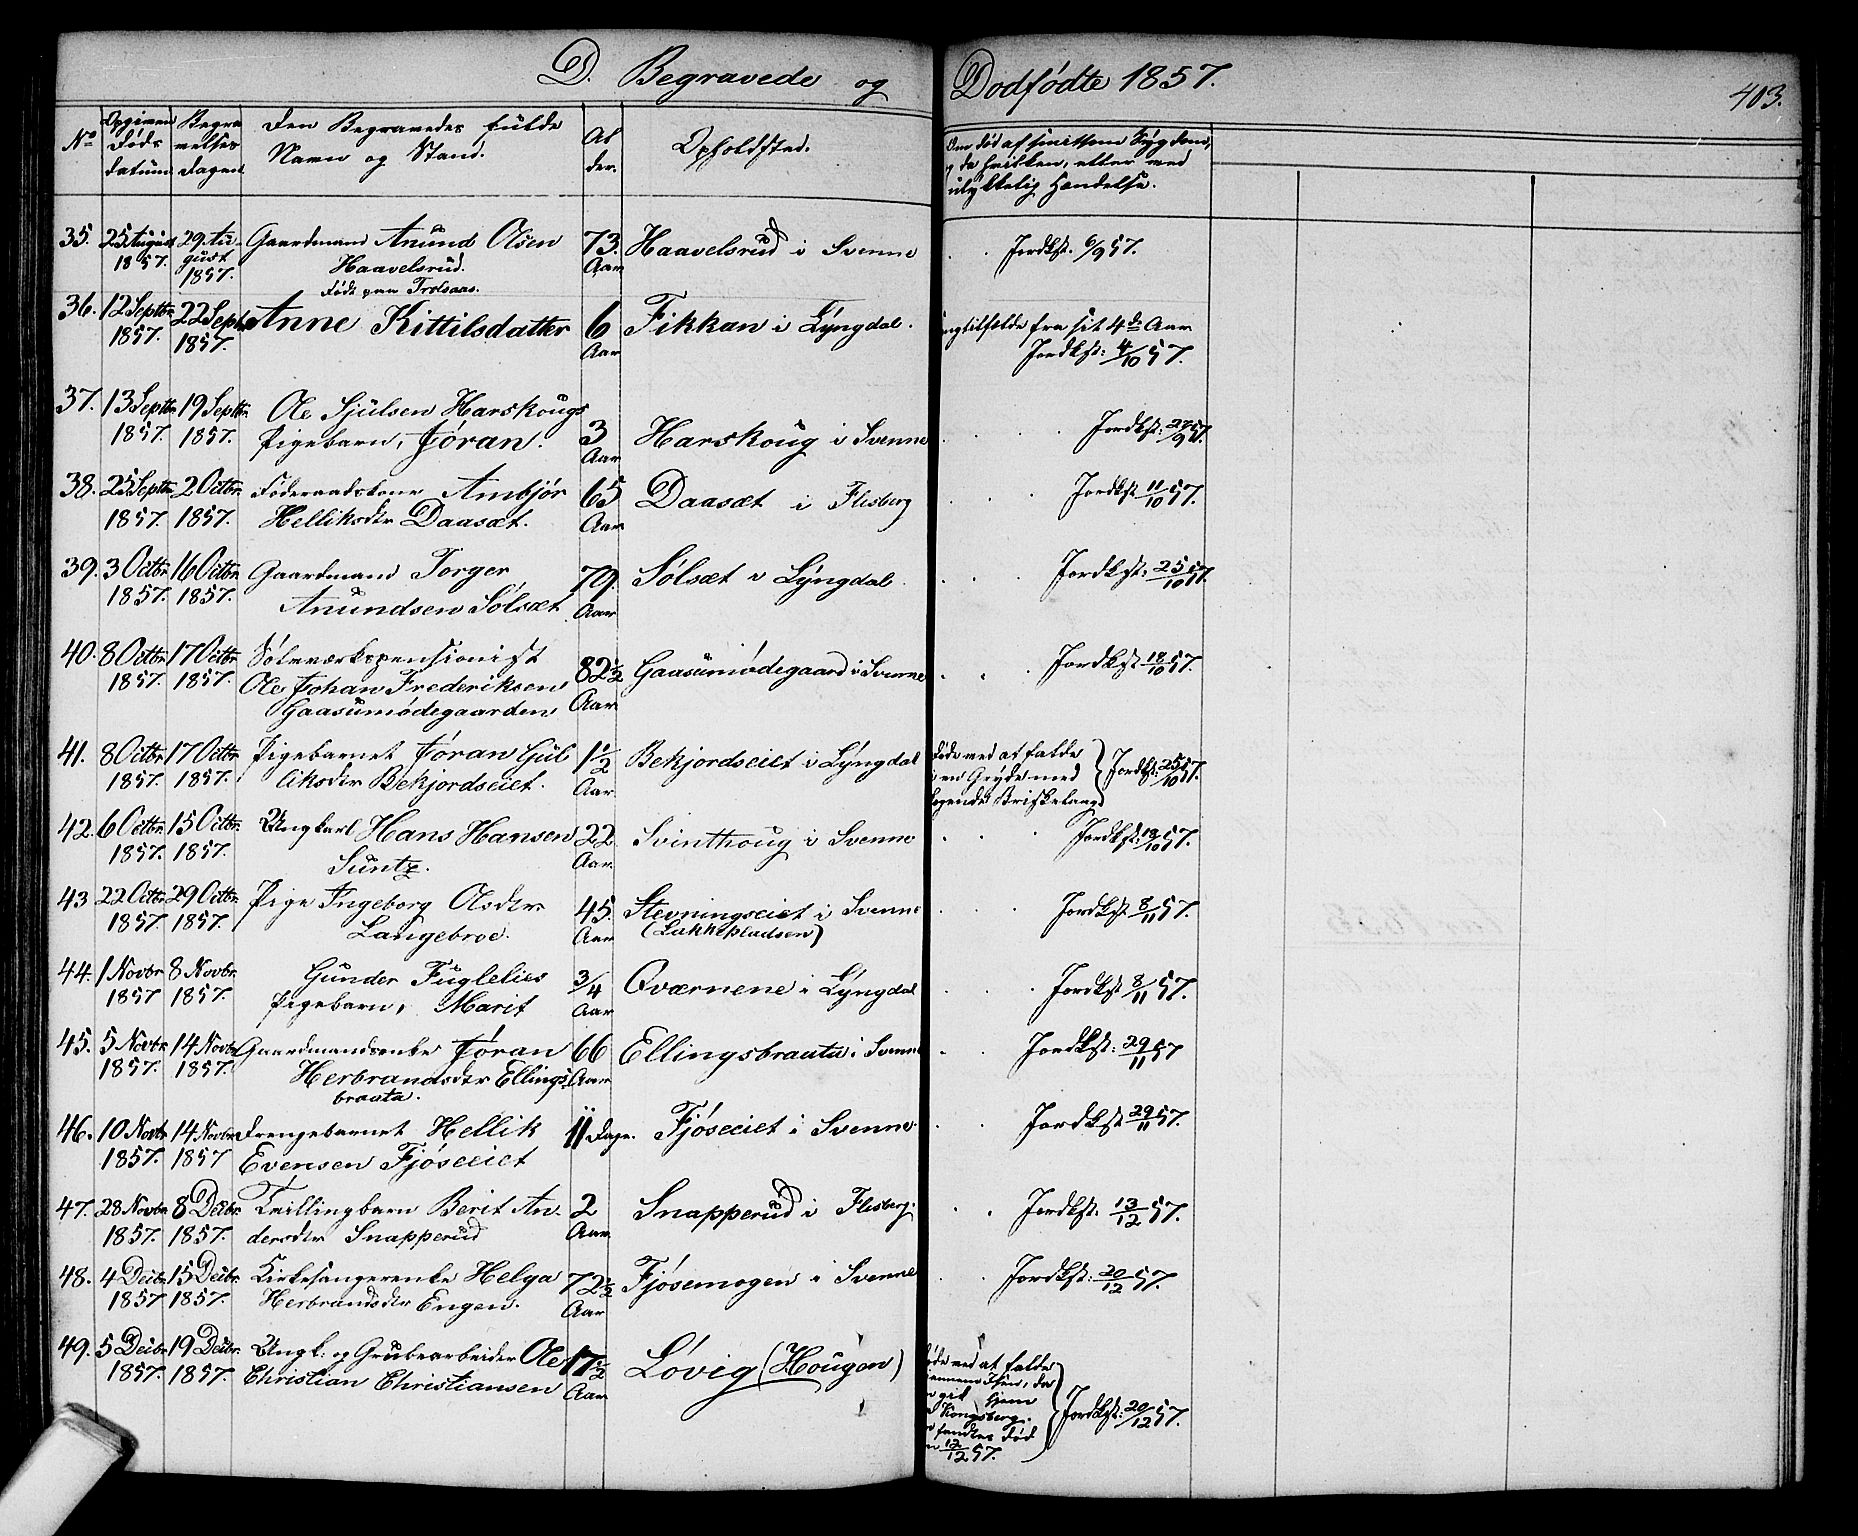 D. Begravede og Dødfødte 1857.
403.
No
Opgiven Døds datum
Begravelses dagen
Den Begravedes fulde Navn og Stand.
Alder.
Opholdsted.
Om død af smittsom Sygdom, og da hvilken, eller ved ulykkelig Hændelse.
35. 25 August 1857. 29. August 1857. Gaardmand Anund Olsen Haavelsrud. født paa Trolsaas. 73. Aar Haavelsrud i Svenne Jordkst. 6/9 57.
36. 12 Septbr. 1857. 22 Septbr. 1857. Anne Kittilsdatter 6 Aar Fikkan i Lyngdal. fra sit 4de Aar Jordkst: 4/10 57.
37. 13 Septbr. 1857. 19 Septbr. 1857. Ole Sjulsen Harskougs Pigebarn, Jøran. 3 Aar Harskoug i Svenne Jordkst: 27/9 57.
38. 25 Septbr. 1857. 2 Octbr. 1857. Føderaadskone Ambjør Helliksdtr Daasæt. 65 Aar Daasæt i Flesberg Jordkst 11/10 57.
39. 3 Octbr. 1857. 16 Octbr. 1857. Gaardmand Torger Anundsen Sølsæt 79. Aar Sølsæt i Lyngdal. Jordkst: 25/10 57.
40. 8 Octbr. 1857. 17 Octbr. 1857. Sølvværkspensionist Ole Johan Frederiksen Gaasumødegaarden 82 1/2 Aar Gaasumødegaard i Svenne Jordkst 18/10 57.
41. 8 Octbr. 1857. 17 Octbr. 1857. Pigebarnet Jøran Gulliksdtr Bekjordseiet. 1 1/2 Aar. Bekjordseiet i Lyngdal Døde ved at falde i en Gryde med kogende Briskelaug Jordkst: 25/10 57.
42. 6 Octbr. 1857. 15 Octbr. 1857. Ungkarl Hans Hansen Suntz. 22 Aar. Svinthoug i Svenne Jordkst: 18/10 57.
43 22 Octbr. 1857. 29 Octbr. 1857. Pige Ingeborg Olsdtr. Langebroe. 45. Aar Stevningseiet i Svenne (Lukkepladsen) Jordkst 8/11 57.
44. 1 Novbr. 1857 8 Novbr. 1857. Gunder Fuglelies Pigebarn, Marit 3/4 Aar Qværnene i Lyngdal Jordkst 8/11 57.
45. 5 Novbr. 1857. 14 Novbr. 1857. Gaardmandsenke Jøran Herbrandsdtr Ellingsbrauta. 66 Aar Ellingsbrauta i Svenne Jordkst: 29/11 57
46. 10 Novbr. 1857. 14 Novbr. 1857 Drengebarnet Hellik Evensen Fjøseeiet 11 Dage. Fjøseeiet i Svenne. Jordkst 29/11 57.
47. 28 Novbr. 1857. 8 Decbr. 1857. Tvillingbarn Berit Andersdtr Snapperud 2 Aar. Snapperud i Flesberg. Jordkst: 13/12 57.
48. 4 Decbr. 1857 15 Decbr. 1857. Kirkesangerenke Helga Herbrandsdtr Engen. 72 1/2 Aar Fjøsemogen i Svenne Jordkst: 20/12 57.
49. 5 Decbr. 1857. 19 Decbr. 1857. Ungk: og Grubearbeider Ole Christian Christiansen 17 1/2 Aar Løvig (Hougen) Døde ved at falde gjennem Isen, da han gik hjem fra Kongsberg. fandtes død 12/12 57. Jordkst: 20/12 57.